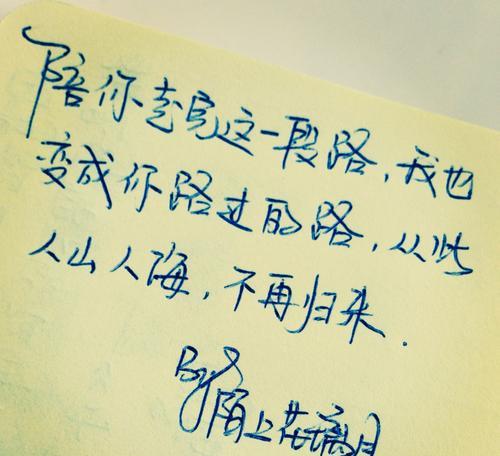 陪你走完这一段路,我也
变成你路过的路,从此
人山人海,不再归来.
By 陌上花璃月